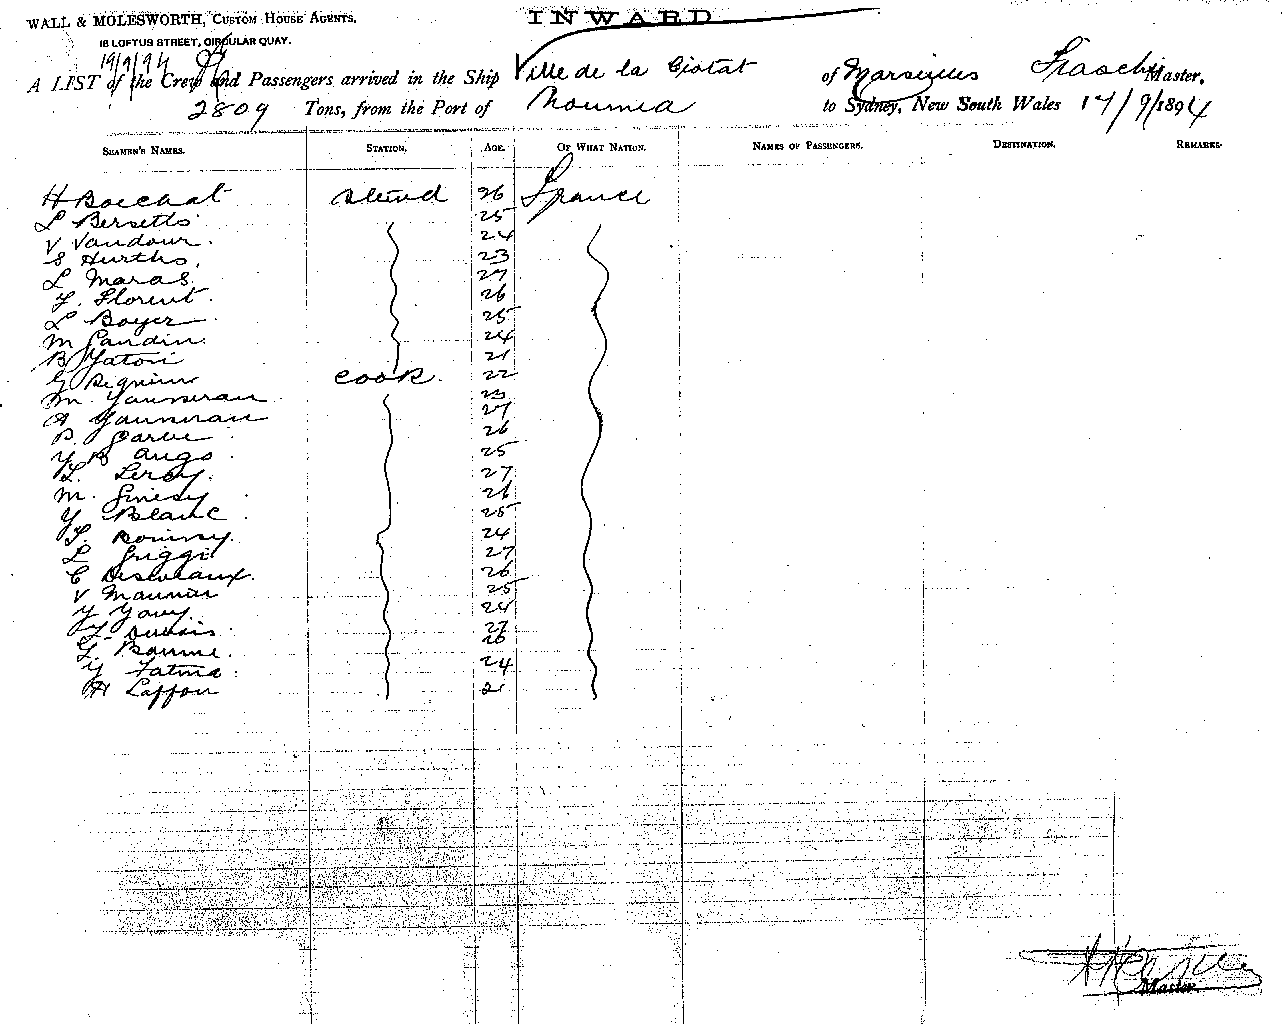 WALL & MOLESWORTH, CUSTOM HOUSE AGENTS.
INWARD
18 LOFTUS STREET, CIRCULAR QUAY.
19/9/94
A LIST of the Crew and Passengers arrived in the Ship Ville de la Ciotat of Marseilles Master,
2809 Tons, from the Port of Noumea to Sydney, New South Wales 17/9/1894
SEAMEN'S NAMES. STATION. AGE. OF WHAT NATION. NAMES OF PASSENGERS. DESTINATION. REMARKS.
H Boechat Stewd 26 France
L Bersetts 25
V Vandour 24
S Hurths 23
L Maras 27
F. Florent 26
L Boyer 25
M Gandin 24
B Yatori 21
G cook 22
M. 23
A 27
P. 26
Y B Augo 25
L. Leroy 27
M. Ginesy 26
Y Blanc 25
24
L Griggi 27
C Desveaux 26
V Maunier 25
Y Gavy 24
27
G. Baume 26
Y Fatma 24
H Laffon 21
Master